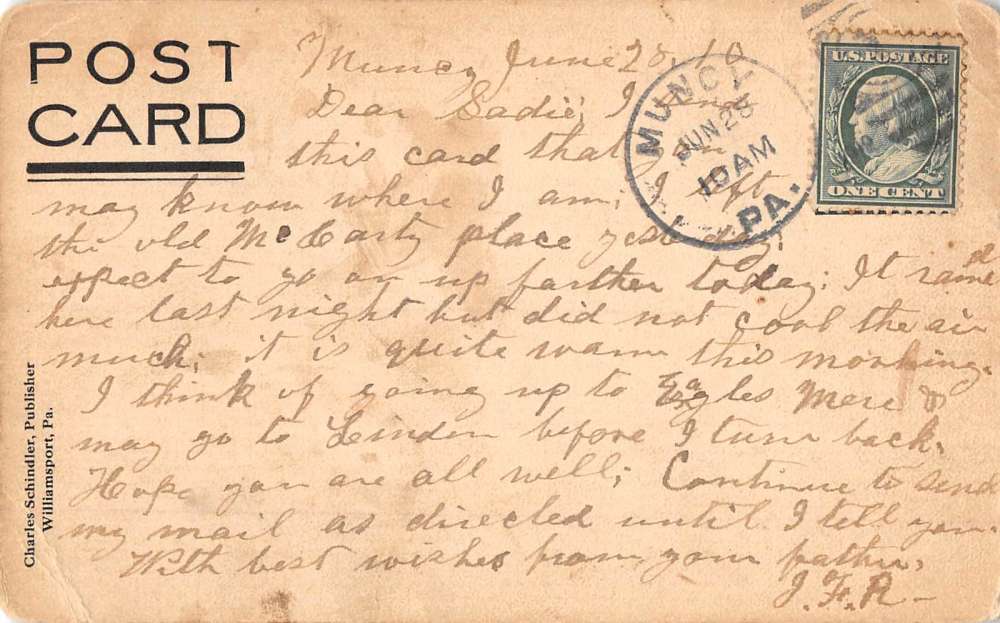 POST
CARD
Muncy June 28, 10
Dear Sadie; I send
this card that you
may know where I am; I left
the old McCarty place yesterday;
expect to go on up farther today; It rained
here last night but did not cool the air
much; it is quite warm this morning.
I think of going up to Eagles Mere &
may go to Linden before I turn back.
Hope you are all well; Continue to send
my mail as directed until I tell you.
With best wishes from your father,
J. F. R-
MUNCY
JUN 28
10 AM
PA.
U.S. POSTAGE
ONE CENT
Charles Schindler, Publisher
Williamsport, Pa.